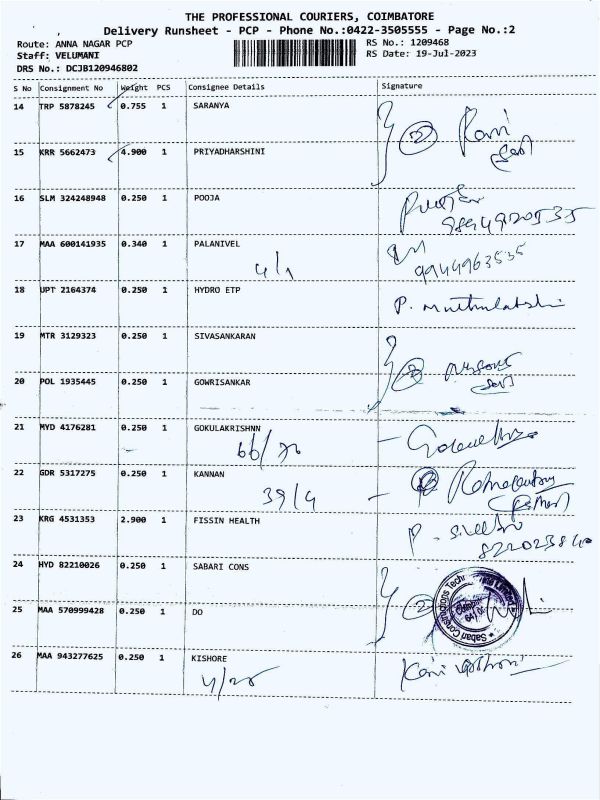 THE PROFESSIONAL COURIERS, COIMBATORE
Delivery Runsheet - PCP - Phone No.:0422-3505555 - Page No.:2
Route: ANNA NAGAR PCP RS No.: 1209468
Staff: VELUMANI RS Date: 19-Jul-2023
DRS No.: DCJB120946802
S No Consignment No Weight PCS Consignee Details Signature
14 TRP 5878245 0.755 1 SARANYA
15 KRR 5662473 4.900 1 PRIYADHARSHINI
16 SLM 324248948 0.250 1 POOJA
17 MAA 600141935 0.340 1 PALANIVEL
9944963535
4/1
18 UPT 2164374 0.250 1 HYDRO ETP P. Muthulakshi
19 MTR 3129323 0.250 1 SIVASANKARAN
20 POL 1935445 0.250 1 GOWRISANKAR
21 MYD 4176281 0.250 1 GOKULAKRISHNN
22 GDR 5317275 0.250 1 KANNAN
39/4
23 KRG 4531353 2.900 1 FISSIN HEALTH
24 HYD 82210026 0.250 1 SABARI CONS
25 MAA 570999428 0.250 1 DO
26 MAA 943277625 0.250 1 KISHORE